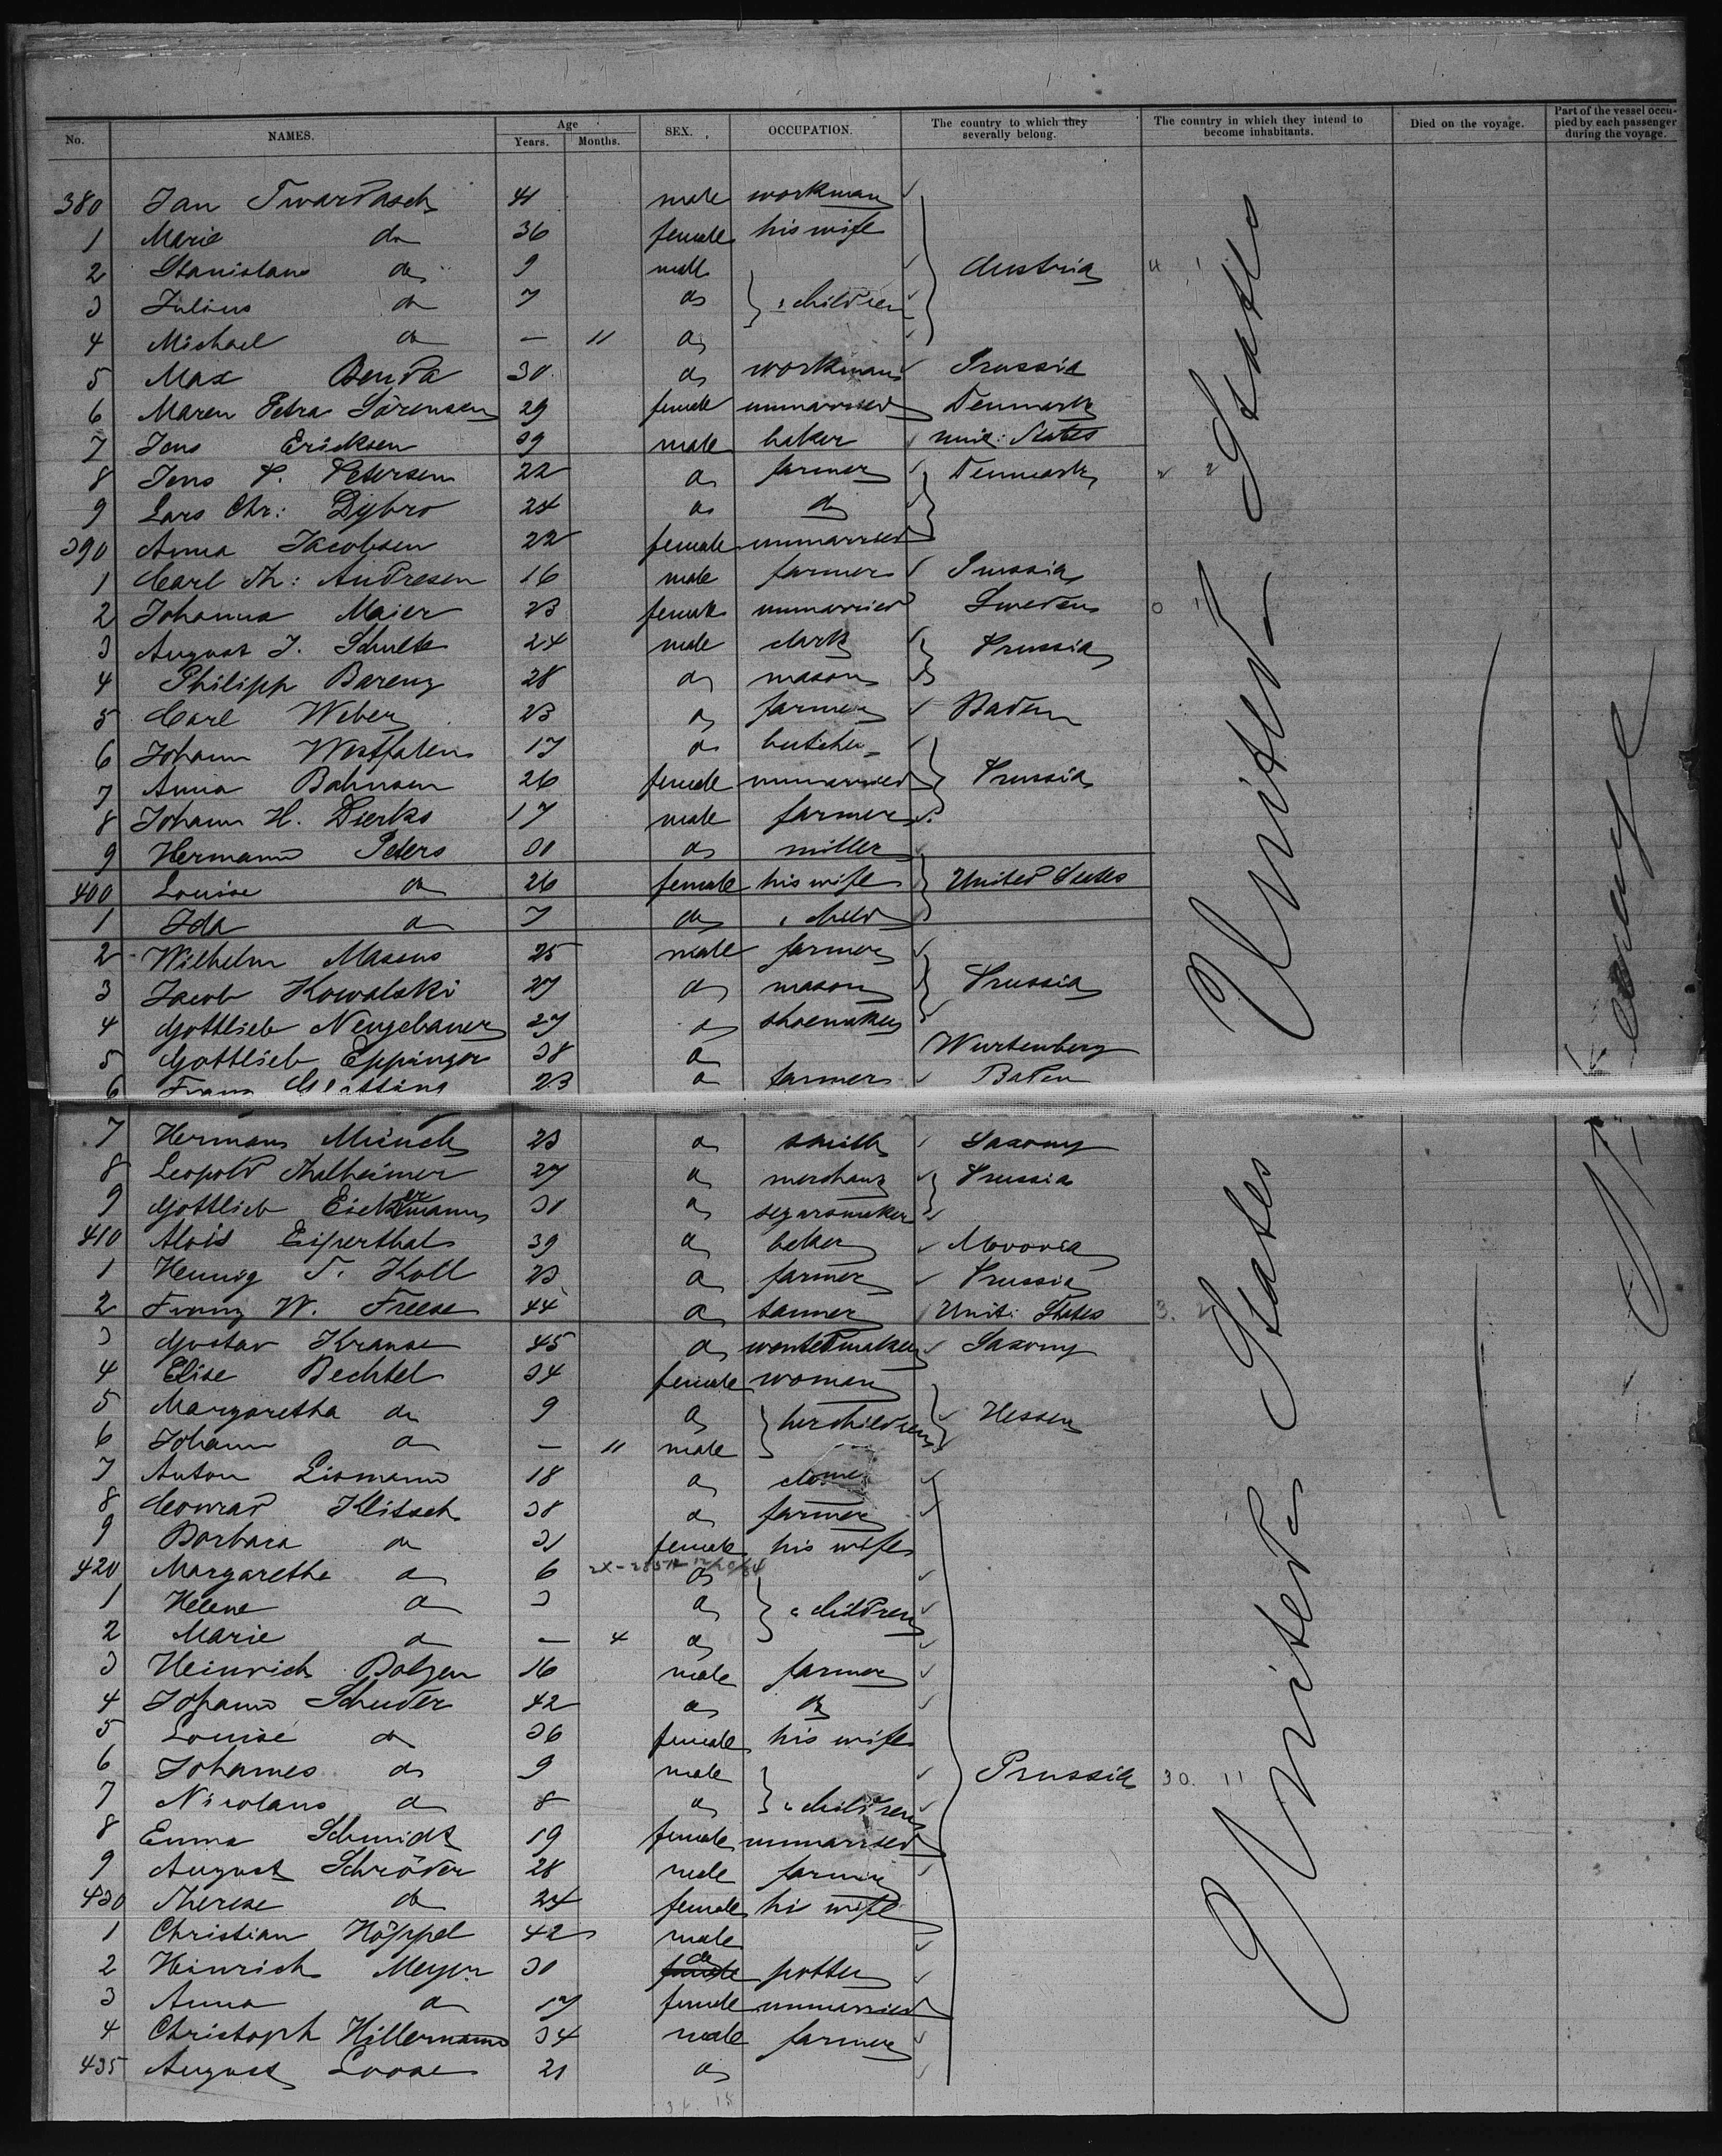 No. NAMES. Age Years. Months. SEX. OCCUPATION. The country to which they severally belong. The country in which they intend to become inhabitants. Died on the voyage. Part of the vessel occupied by each passenger during the voyage.
380 Jan Twardasch 41 male workman
1 Marie do 36 female his wife
2 Stanislaus do 9 male Austria 4 1
3 Julius do 7 do children
4 Michael do — 11 do
5 Max Benda 30 do workman Prussia
6 Maren Petra Sörensen 29 female unmarried Denmark
7 Jens Ericksen 39 male baker Unit: States
8 Jens P. Petersen 22 do farmer Denmark 2 2
9 Lars Chr: Dybro 24 do do
390 Anna Jacobsen 22 female unmarried
1 Carl Th: Andresen 16 male farmer Prussia
2 Johanna Maier 23 female unmarried Sweden 0 1
3 August J. Schulte 24 male clark Prussia
4 Philipp Barenz 28 do mason
5 Carl Weber 23 do farmer Baden
6 Johann Westfalen 17 do butcher
7 Anna Bahnsen 26 female unmarried Prussia
8 Johann H. Dierks 17 male farmer
9 Hermann Peters 30 do miller
400 Louise do 26 female his wife United States
1 Ida do 7 do child
2 Wilhelm Masens 25 male farmer
3 Jacob Kowalski 27 do mason Prussia
4 Gottlieb Neugebauer 27 do shoemaker
5 Gottlieb Eppinger 38 do Wurtenberg
6 Franz 23 do farmer Baden
United States
7 Hermann Münch 23 do smith Saxony
8 Leopold Thalheimer 27 do merchant Prussia
9 Gottlieb Eickermann 31 do segarsmaker
410 Alois Eiperthal 39 do baker Moravia
1 Hennig T. Koll 23 do farmer Prussia
2 Franz W. Freese 44 do tanner Unit: States 3. 2
3 Gustav Krause 45 do Saxony
4 Elise Bechtel 34 female woman
5 Margaretha do 9 do her children Hessen
6 Johann do — 11 male
7 Anton Lismann 18 do
8 Conrad Klitsch 38 do farmer
9 Barbara do 31 female his wife
420 Margarethe do 6 do
1 Helene do 3 do children
2 Marie do — 4 do
3 Heinrich Bolzen 16 male farmer
4 Johann Schuder 42 do do
5 Louise do 36 female his wife
6 Johannes do 9 male Prussia 30. 11
7 Nicolaus do 8 do children
8 Emma Schmidt 19 female unmarried
9 August Schröder 28 male farmer
430 Therese do 24 female his wife
1 Christian Höppel 42 male
2 Heinrich Meyer 30 do potter
3 Anna do 17 female unmarried
4 Christoph Hillermann 34 male farmer
435 August Loose 21 do
United States